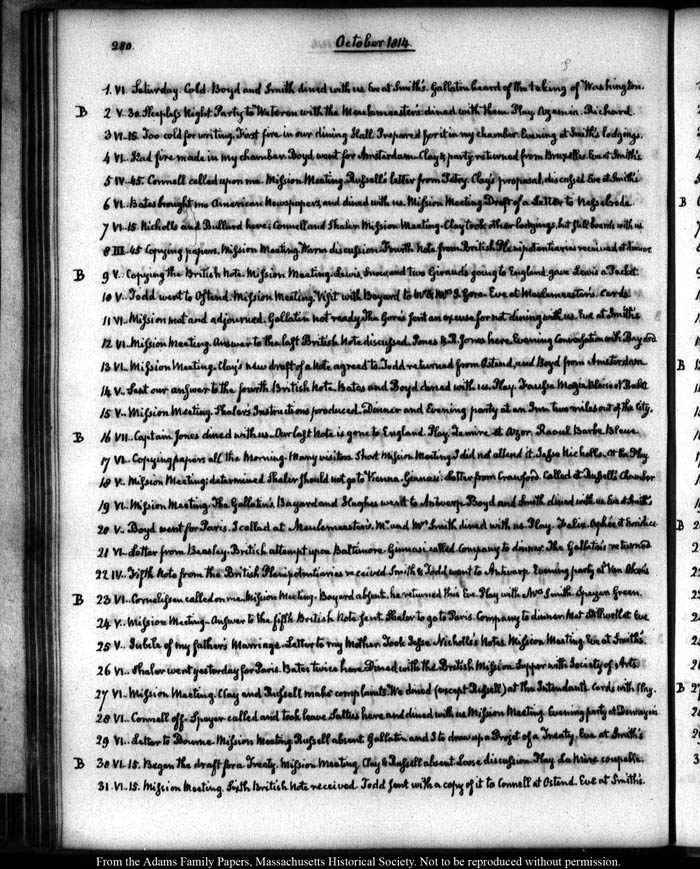 280.
October 1814.
1. VI. Saturday. Cold. Boyd and Smith dined with us. Eve at Smith's. Gallatin heard of the taking of Washington.
B 2 V. 30. Sleepless Night. Party to Wateren with the Meulemeester's: dined with them. Play. Azemia. Richard.
3 VI. 15. Too cold for writing. First fire in our dining Hall. Prepared for it in my chamber. Evening at Smith's lodgings.
4 VI.. Had fire made in my chamber. Boyd went for Amsterdam. Clay & party returned from Bruxelles. Eve at Smith's
5 IV. 45. Connell called upon me. Mission Meeting. Russell's letter from Petry. Clay's proposal, discussed. Eve at Smith's
6 VI.. Bates brought me American Newspapers, and dined with us. Mission Meeting. Draft of a Letter to Nesselrode.
7 VI. 15. Nicholls and Bullard here; Connell and Shaler. Mission Meeting. Clay took other lodgings, but still boards with us
8 III. 45 Copying papers. Mission Meeting. Warm discussion. Fourth Note from British Plenipotentiaries received at dinner.
B 9 V.. Copying the British Note. Mission Meeting. Lewis, and two Girauds going to England. gave Lewis a Packet
10 V.. Todd went to Ostend. Mission Meeting. Visit with Bayard to Mr & Mrs Gore. Eve at Meulemeester's. Cards
11 VI.. Mission met and adjourned. Gallatin not ready. The Gores sent an excuse for not dining with us. Eve at Smith's
12 VI. Mission Meeting. Answer to the last British Note discussed. Jones & R. Jones here. Evening Conversation with Bayard
13 VI. Mission Meeting. Clay's new draft of a Note agreed to. Todd returned from Ostend, and Boyd from Amsterdam
14 V.. Sent our answer to the fourth British Note. Bates and Boyd dined with us. Play. Fausse Magie, Blaise et Babet
15 V.. Mission Meeting. Shaler's Instructions produced. Dinner and Evening party at an Inn two miles out of the City.
B 16 VII.. Captain Jones dined with us. Our last Note is gone to England. Play. Zemire et Azor. Raoul Barbe Bleue.
17 VI.. Copying papers all the Morning. Many visitors. Short Mission Meeting I did not attend it. Jesse Nicholls. At the Play
18 V.. Mission Meeting; determined Shaler should not go to Vienna. Ginnasi. Letter from Crawford. Called at Russell's Chamber
19 VI.. Mission Meeting. The Gallatins, Bayard and Hughes went to Antwerp. Boyd and Smith dined with us. Eve at Smith's
20 V.. Boyd went for Paris. I called at Meulemeester's. Mr and Mrs Smith dined with us. Play. Felix. Orphée et Euridice
21 VI.. Letter from Beasley. British attempt upon Baltimore. Ginnasi called. Company to dinner. The Gallatin's returned
22 IV.. Fifth Note from the British Plenipotentiaries received. Smith & Todd went to Antwerp. Evening party at Van Aken's
B 23 VI.. Cornelissen called on me. Mission Meeting. Bayard absent, he returned this Eve. Play with Mrs Smith. Speyer. Green.
24 V.. Mission Meeting. Answer to the fifth British Note sent. Shaler to go to Paris. Company to dinner. Met Stillwell at Eve
25 V.. Jubile of my father's Marriage. Letter to my Mother. Took Jesse Nicholls's Notes. Mission Meeting. Eve at Smith's.
26 VI.. Shaler went yesterday for Paris. Bates twice here. Dined with the British Mission. Supper with Society of Arts
B 27 VI.. Mission Meeting. Clay and Russell make complaints. We dined (except Russell) at The Intendant's. Cards with Clay.
28 VI.. Connell off. Speyer called and took leave. here and dined with us. Mission Meeting. Evening party at
29 VI.. Letter to Bourne. Mission Meeting. Russell absent. Gallatin and I to draw up a Projet of a Treaty. Eve at Smith's
B 30 VI. 15. Began the draft for a Treaty. Mission Meeting. Clay & Russell absent. Loose discussion. Play. La Mère coupable.
31. VI.. 15. Mission Meeting. Sixth British Note received. Todd sent with a copy of it to Connell at Ostend. Eve at Smith's.
From the Adams Family Papers, Massachusetts Historical Society. Not to be reproduced without permission.